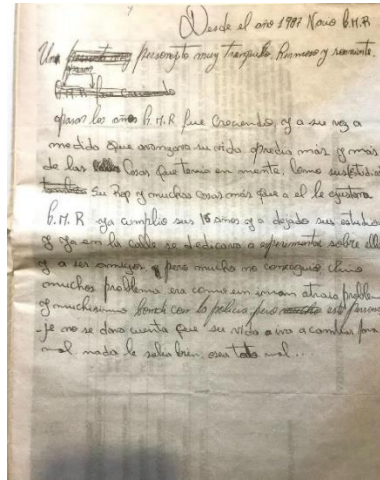 Desde el año 1987 Nacio B.M.R
Una personita muy tranquila, Hermoso y sonriente.
pasan los años B.M.R fue Creciendo, y a su vez a
medida que avanzava su vida aprendia más y más
de las Cosas que tenia en mente, como sus estudios
su Rap y muchas cosas más que a el le gustava
B.M.R ya cumplio sus 16 años y a dejado sus estudios
y ya em la calle se dedicava a experimentar sobre ella
y a ser amigos, pero mucho no consiguio,
muchos problema era como un iman atraia problema
y muchisimo bondi con la policia pero este persona
-je no se dava cuenta que su vida iva a cambiar para
mal nada le salia bien, esta todo mal...